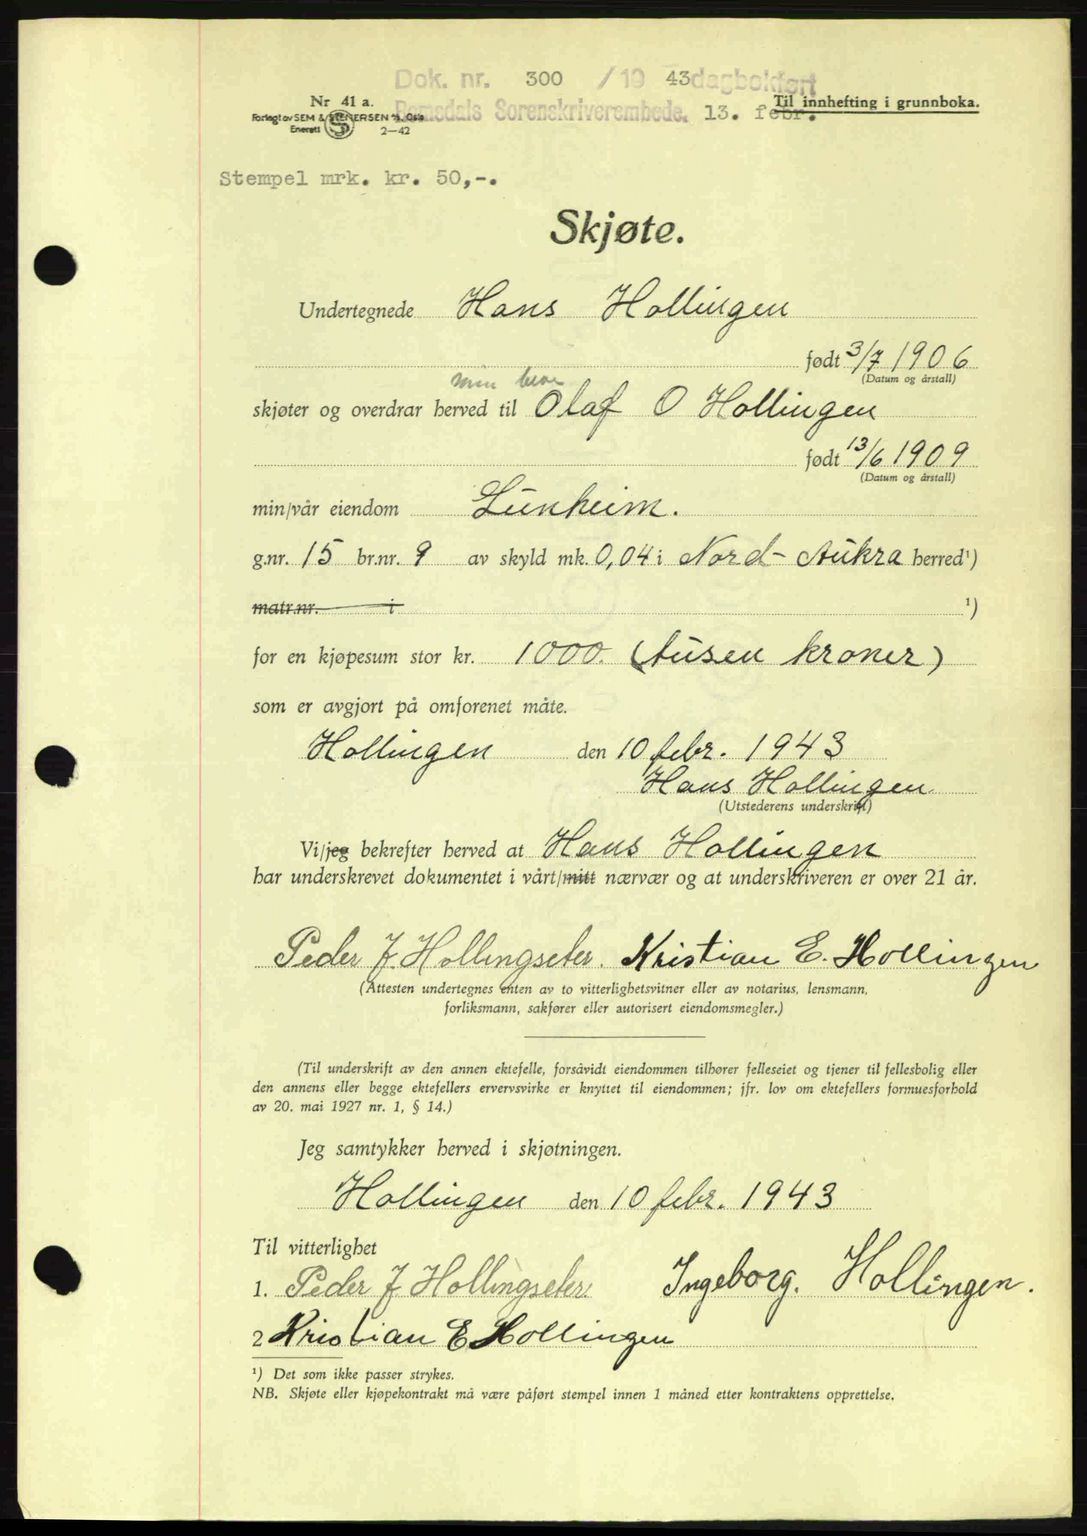 Dok. nr. 300 /19 43 dagbokført
Nr 41 a. Romsdals Sorenskriverembede. 13. febr. Til innhefting i grunnboka.
Forlagt av SEM & STENERSEN A/S, Oslo
Enerett 2—42
Stempel mrk. kr. 50,-.
Skjøte.
Undertegnede Hans Hollingen
født 3/7 1906
(Datum og årstall)
min bror
skjøter og overdrar herved til Olaf O Hollingen
født 13/6 1909
(Datum og årstall)
min/vår eiendom Lunheim.
g.nr. 15 br.nr. 9 av skyld mk. 0,04 i Nord-Aukra herred¹)
matr.nr. i ¹)
for en kjøpesum stor kr. 1000. (Tusen kroner)
som er avgjort på omforenet måte.
Hollingen den 10 febr. 1943
Hans Hollingen
(Utstederens underskrift)
Vi/jeg bekrefter herved at Hans Hollingen
har underskrevet dokumentet i vårt/mitt nærvær og at underskriveren er over 21 år.
Peder J. Hollingseter. Kristian E. Hollingen
(Attesten undertegnes enten av to vitterlighetsvitner eller av notarius, lensmann,
forliksmann, sakfører eller autorisert eiendomsmegler.)
(Til underskrift av den annen ektefelle, forsåvidt eiendommen tilhører felleseiet og tjener til fellesbolig eller
den annens eller begge ektefellers ervervsvirke er knyttet til eiendommen; jfr. lov om ektefellers formuesforhold
av 20. mai 1927 nr. 1, § 14.)
Jeg samtykker herved i skjøtningen.
Hollingen den 10 febr. 1943
Til vitterlighet
1. Peder J Hollingseter Ingeborg. Hollingen.
2 Kristian E Hollingen
¹) Det som ikke passer strykes.
NB. Skjøte eller kjøpekontrakt må være påført stempel innen 1 måned etter kontraktens opprettelse.